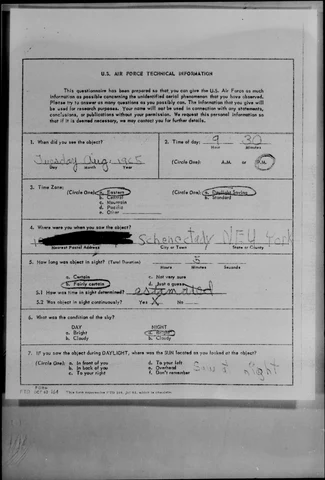 U.S. AIR FORCE TECHNICAL INFORMATION
This questionnaire has been prepared so that you can give the U.S. Air Force as much
information as possible concerning the unidentified aerial phenomenon that you have observed.
Please try to answer as many questions as you possibly can. The information that you give will
be used for research purposes. Your name will not be used in connection with any statements,
conclusions, or publications without your permission. We request this personal information so
that if it is deemed necessary, we may contact you for further details.
1. When did you see the object?
Tuesday Aug. 1965
Day Month Year
2. Time of day: 9 30
Hour Minutes
(Circle One): A.M. or P.M.
3. Time Zone:
(Circle One): a. Eastern
b. Central
c. Mountain
d. Pacific
e. Other
(Circle One): a. Daylight Saving
b. Standard
4. Where were you when you saw the object?
Schenectady NEW York
Nearest Postal Address City or Town State or County
5. How long was object in sight? (Total Duration) 5
Hours Minutes Seconds
a. Certain c. Not very sure
b. Fairly certain d. Just a guess
5.1 How was time in sight determined? estimated
5.2 Was object in sight continuously? Yes X No
6. What was the condition of the sky?
DAY NIGHT
a. Bright a. Bright
b. Cloudy b. Cloudy
7. IF you saw the object during DAYLIGHT, where was the SUN located as you looked at the object?
(Circle One): a. In front of you d. To your left
b. In back of you e. Overhead
c. To your right f. Don't remember
night
FORM